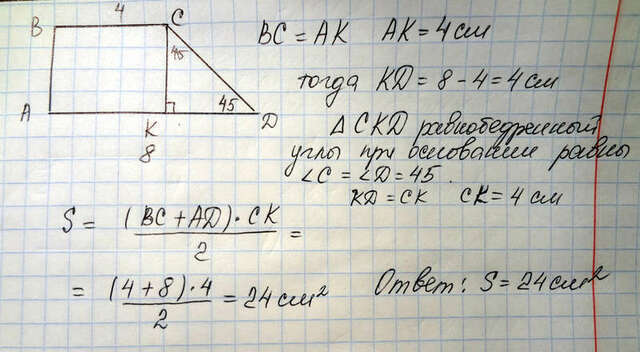 4
B C
45
A 45 D
K
8
BC = AK AK = 4 см
тогда KD = 8 - 4 = 4 см
Δ CKD равнобедренный
углы при основании равны
∠C = ∠D = 45.
KD = CK CK = 4 см
S = (BC + AD) · CK / 2 =
= (4 + 8) · 4 / 2 = 24 см²
Ответ: S = 24 см²